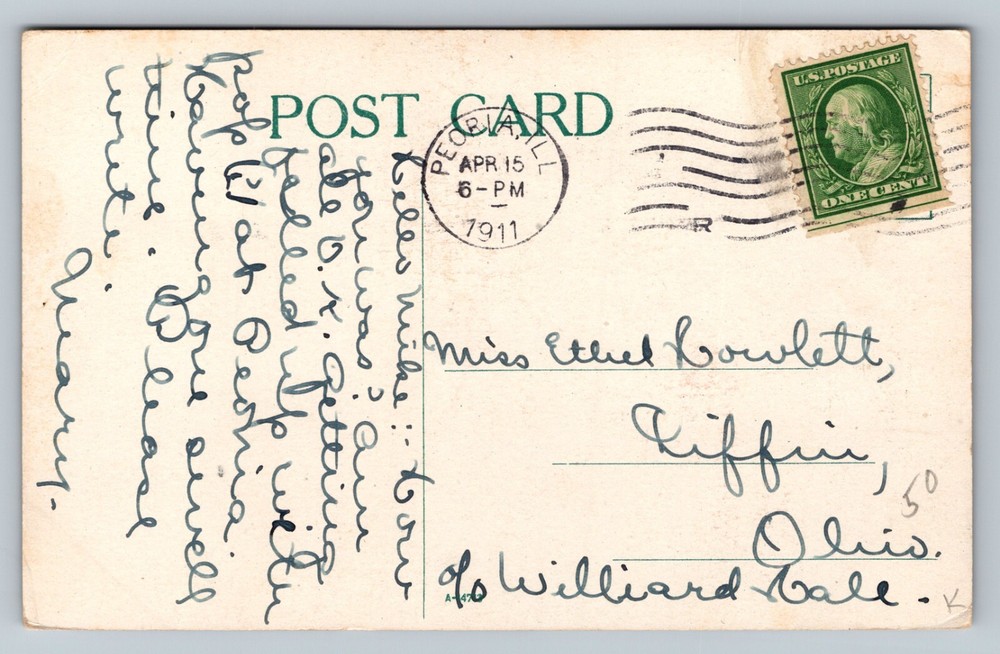 POST CARD
PEORIA, ILL.
APR 15
6-PM
1911
R
U.S. POSTAGE
ONE CENT
Hello Mike :- how
you was? Am
abe O.K. Getting
balled up with
pop at Peoria.
Having one swell
time. Please
write.
Mary.
Miss Ethel Howlett,
Tiffin,
Ohio.
c/o Williard Hale.
50
K